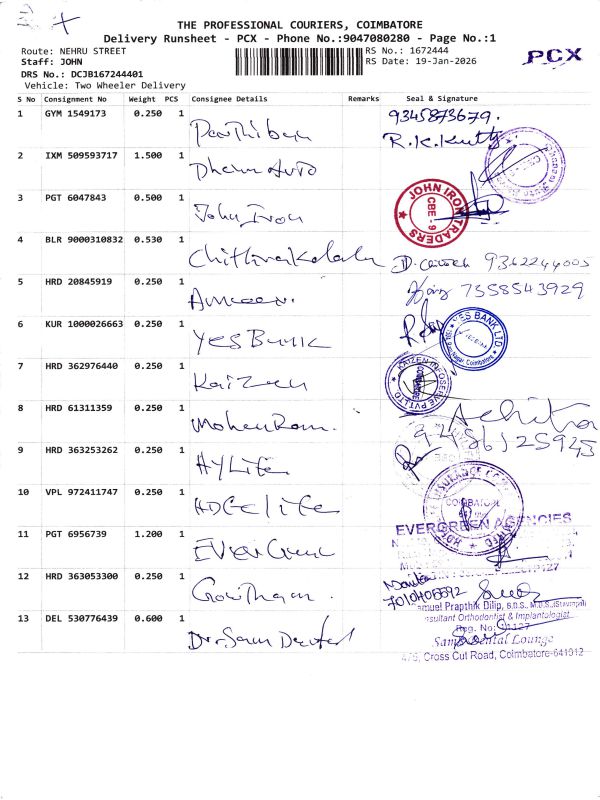 THE PROFESSIONAL COURIERS, COIMBATORE
Delivery Runsheet - PCX - Phone No.:9047080280 - Page No.:1
Route: NEHRU STREET
RS No.: 1672444
PCX
Staff: JOHN
RS Date: 19-Jan-2026
DRS No.: DCJB167244401
Vehicle: Two Wheeler Delivery
S No Consignment No Weight PCS Consignee Details Remarks Seal & Signature
1 GYM 1549173 0.250 1 Parthiban 9345873679.
R.K.Kutty
2 IXM 509593717 1.500 1 Dhanu Auto
3 PGT 6047843 0.500 1 John Iron
JOHN IRON TRADERS
CBE - 9
4 BLR 9000310832 0.530 1 Chithirakalala 9362244005
5 HRD 20845919 0.250 1 Ameen. 7558543929
6 KUR 1000026663 0.250 1 YES Bank
YES BANK LTD
7 HRD 362976440 0.250 1 Kaizen
KAIZEN INFOSERVE PVT LTD
8 HRD 61311359 0.250 1 Mohan Ram.
9486125945
9 HRD 363253262 0.250 1 HYLife
10 VPL 972411747 0.250 1 HDFC life
COIMBATORE
11 PGT 6956739 1.200 1 Ever Green
EVERGREEN AGENCIES
12 HRD 363053300 0.250 1 Gowtham.
7010406592
13 DEL 530776439 0.600 1 Dr. Sam Dental
amuel Prapthik Dilip, B.D.S., M.D.S.,
nsultant Orthodontist & Implantologist
Reg. No:
Sam Dental Lounge
476, Cross Cut Road, Coimbatore-641012